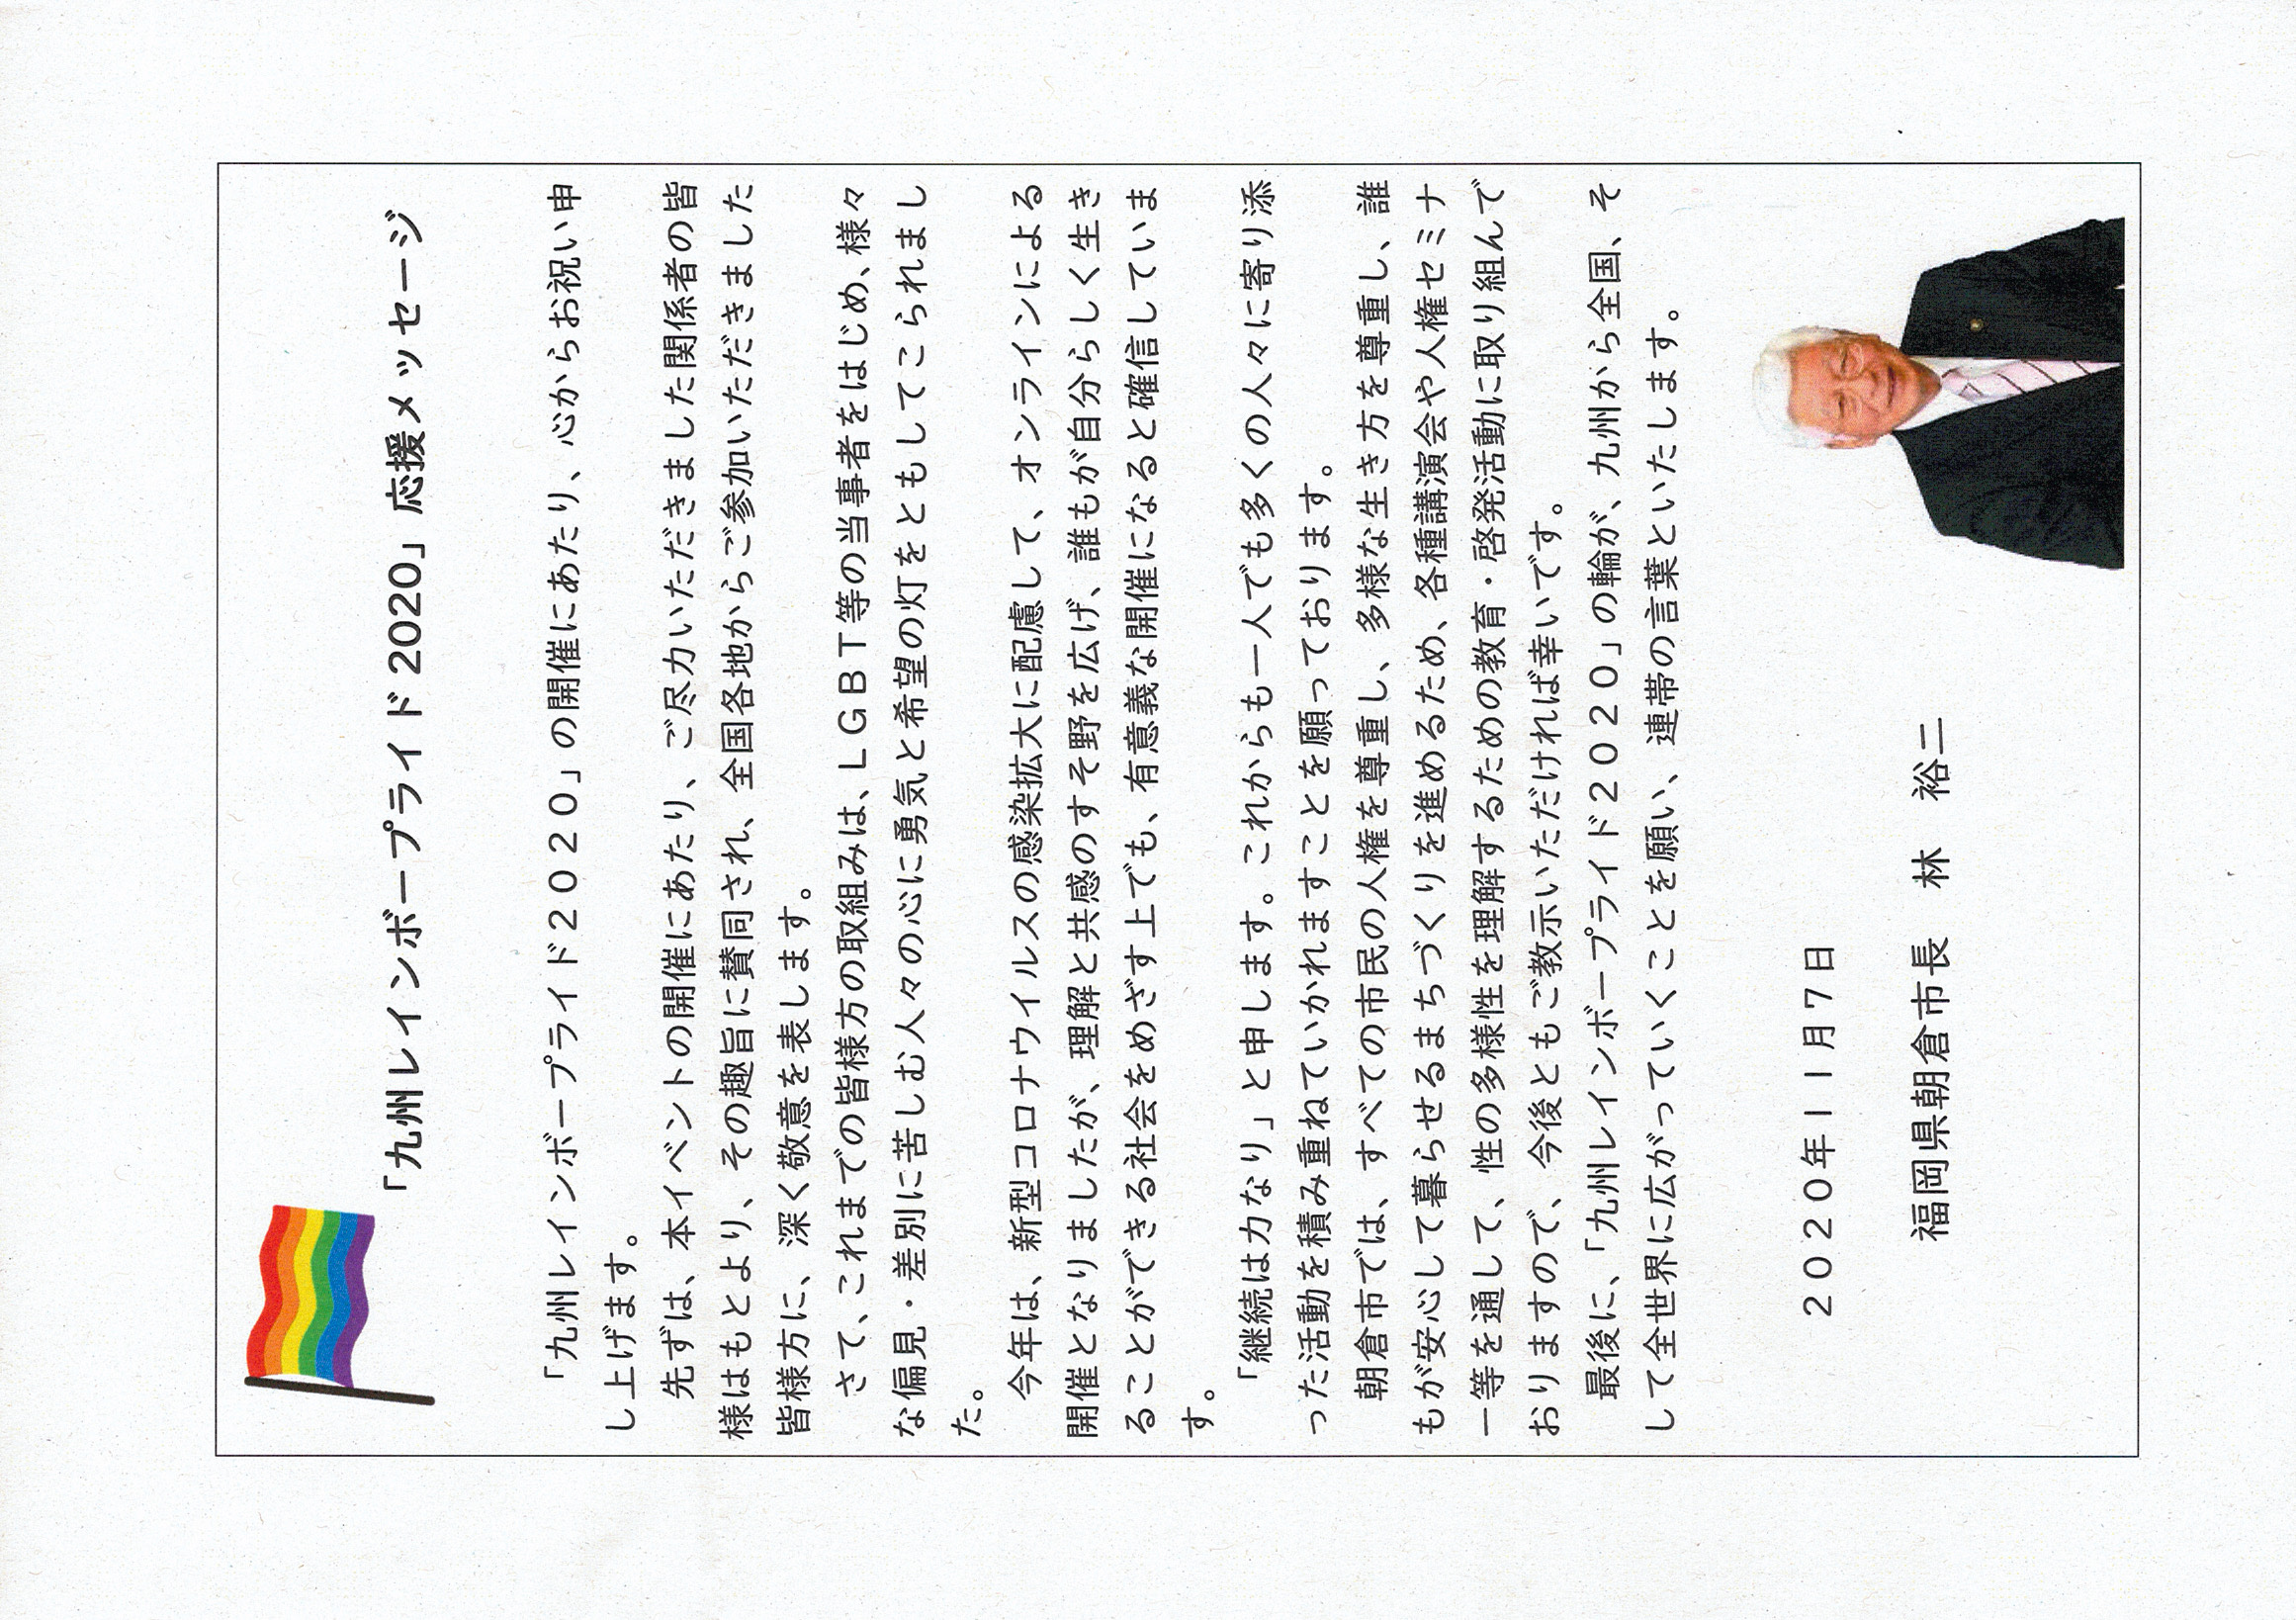 「九州レインボープライド2020」応援メッセージ
「九州レインボープライド2020」の開催にあたり、心からお祝い申
し上げます。
先ずは、本イベントの開催にあたり、ご尽力いただきました関係者の皆
様はもとより、その趣旨に賛同され、全国各地からご参加いただきました
皆様方に、深く敬意を表します。
さて、これまでの皆様方の取組みは、LGBT等の当事者をはじめ、様々
な偏見・差別に苦しむ人々の心に勇気と希望の灯をともしてこられまし
た。
今年は、新型コロナウイルスの感染拡大に配慮して、オンラインによる
開催となりましたが、理解と共感のすそ野を広げ、誰もが自分らしく生き
ることができる社会をめざす上でも、有意義な開催になると確信していま
す。
「継続は力なり」と申します。これからも一人でも多くの人々に寄り添
った活動を積み重ねていかれますことを願っております。
朝倉市では、すべての市民の人権を尊重し、多様な生き方を尊重し、誰
もが安心して暮らせるまちづくりを進めるため、各種講演会や人権セミナ
ー等を通して、性の多様性を理解するための教育・啓発活動に取り組んで
おりますので、今後ともご教示いただければ幸いです。
最後に、「九州レインボープライド2020」の輪が、九州から全国、そ
して全世界に広がっていくことを願い、連帯の言葉といたします。
2020年11月7日
福岡県朝倉市長 林 裕二